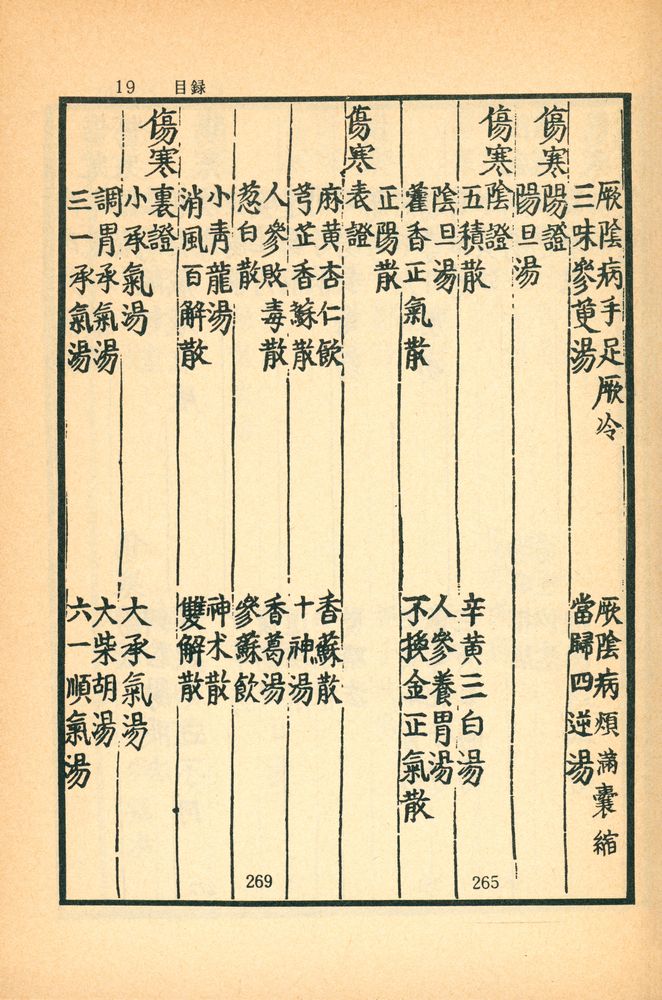 19 目録
厥陰病手足厥冷 厥陰病煩滿囊縮
三味參萸湯 當歸四逆湯
傷寒陽證
陽旦湯
傷寒陰證 265
五積散 辛黃三白湯
陰旦湯 人參養胃湯
藿香正氣散 不換金正氣散
正陽散
傷寒表證
麻黃杏仁飲 香蘇散
芎芷香蘇散 十神湯
人參敗毒散 香葛湯 269
葱白散 參蘇飲
小青龍湯 神朮散
消風百解散 雙解散
傷寒裏證
小承氣湯 大承氣湯
調胃承氣湯 大柴胡湯
三一承氣湯 六一順氣湯